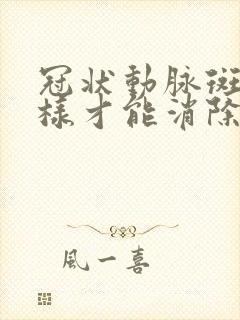 冠狀動脈斑
樣才能消除
風一喜